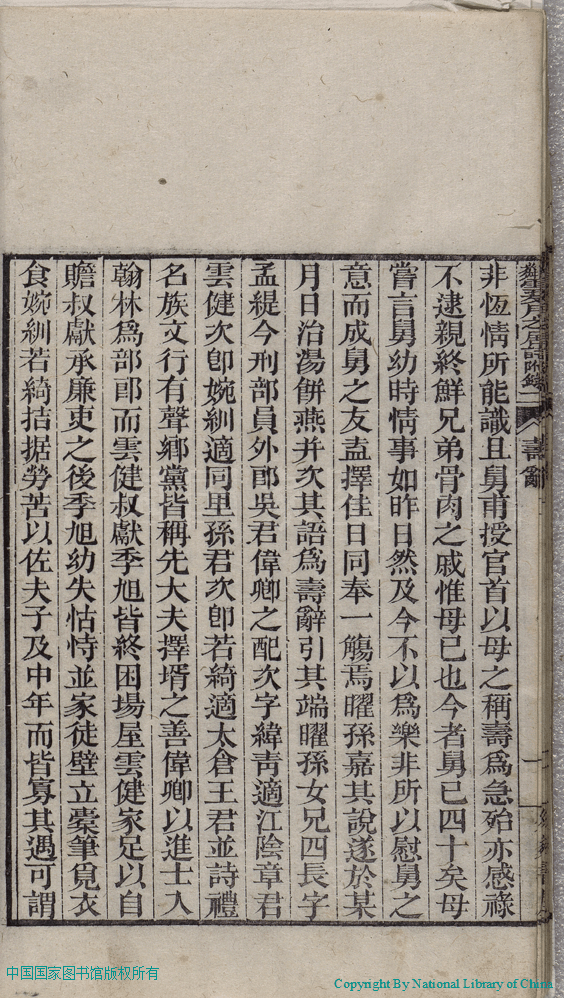 附錄
壽辭
非恆情所能識且舅甫授官首以母之稱壽爲急殆亦感祿
不逮親終鮮兄弟骨肉之戚惟母已也今者舅已四十矣母
嘗言舅幼時情事如昨日然及今不以爲樂非所以慰舅之
意而成舅之友盍擇佳日同奉一觴焉曜孫嘉其說遂於某
月日治湯餅燕并次其語爲壽辭引其端曜孫女兄四長字
孟緹今刑部員外郎吳君偉卿之配次字緯青適江陰章君
雲健次卽婉紃適同里孫君次卽若綺適太倉王君並詩禮
名族文行有聲鄉黨皆稱先大夫擇壻之善偉卿以進士入
翰林爲部郎而雲健叔獻季旭皆終困場屋雲健家足以自
贍叔獻承廉吏之後季旭幼失怙恃並家徒壁立橐筆覓衣
食婉紃若綺拮据勞苦以佐夫子及中年而皆寡其遇可謂
中国国家图书馆版权所有
Copyright By National Library of China